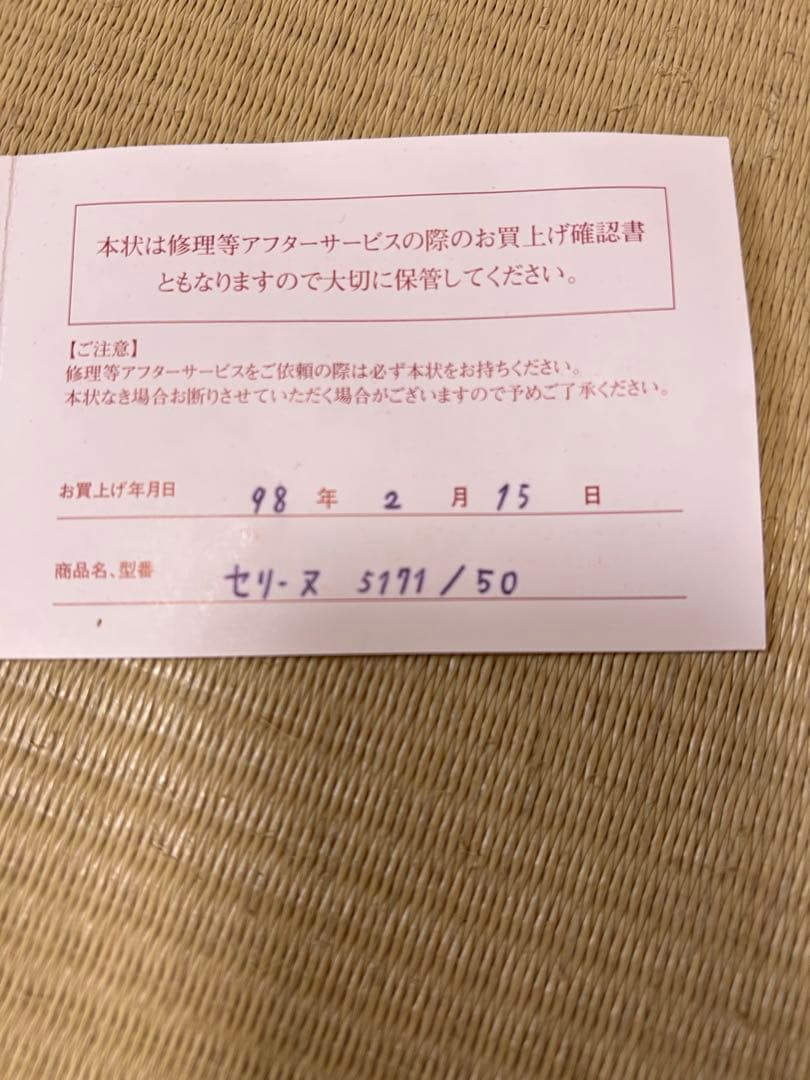 本状は修理等アフターサービスの際のお買上げ確認書
ともなりますので大切に保管してください。
【ご注意】
修理等アフターサービスをご依頼の際は必ず本状をお持ちください。
本状なき場合お断りさせていただく場合がございますので予めご了承ください。
お買上げ年月日 98 年 2 月 15 日
商品名、型番 セリーヌ 5171/50